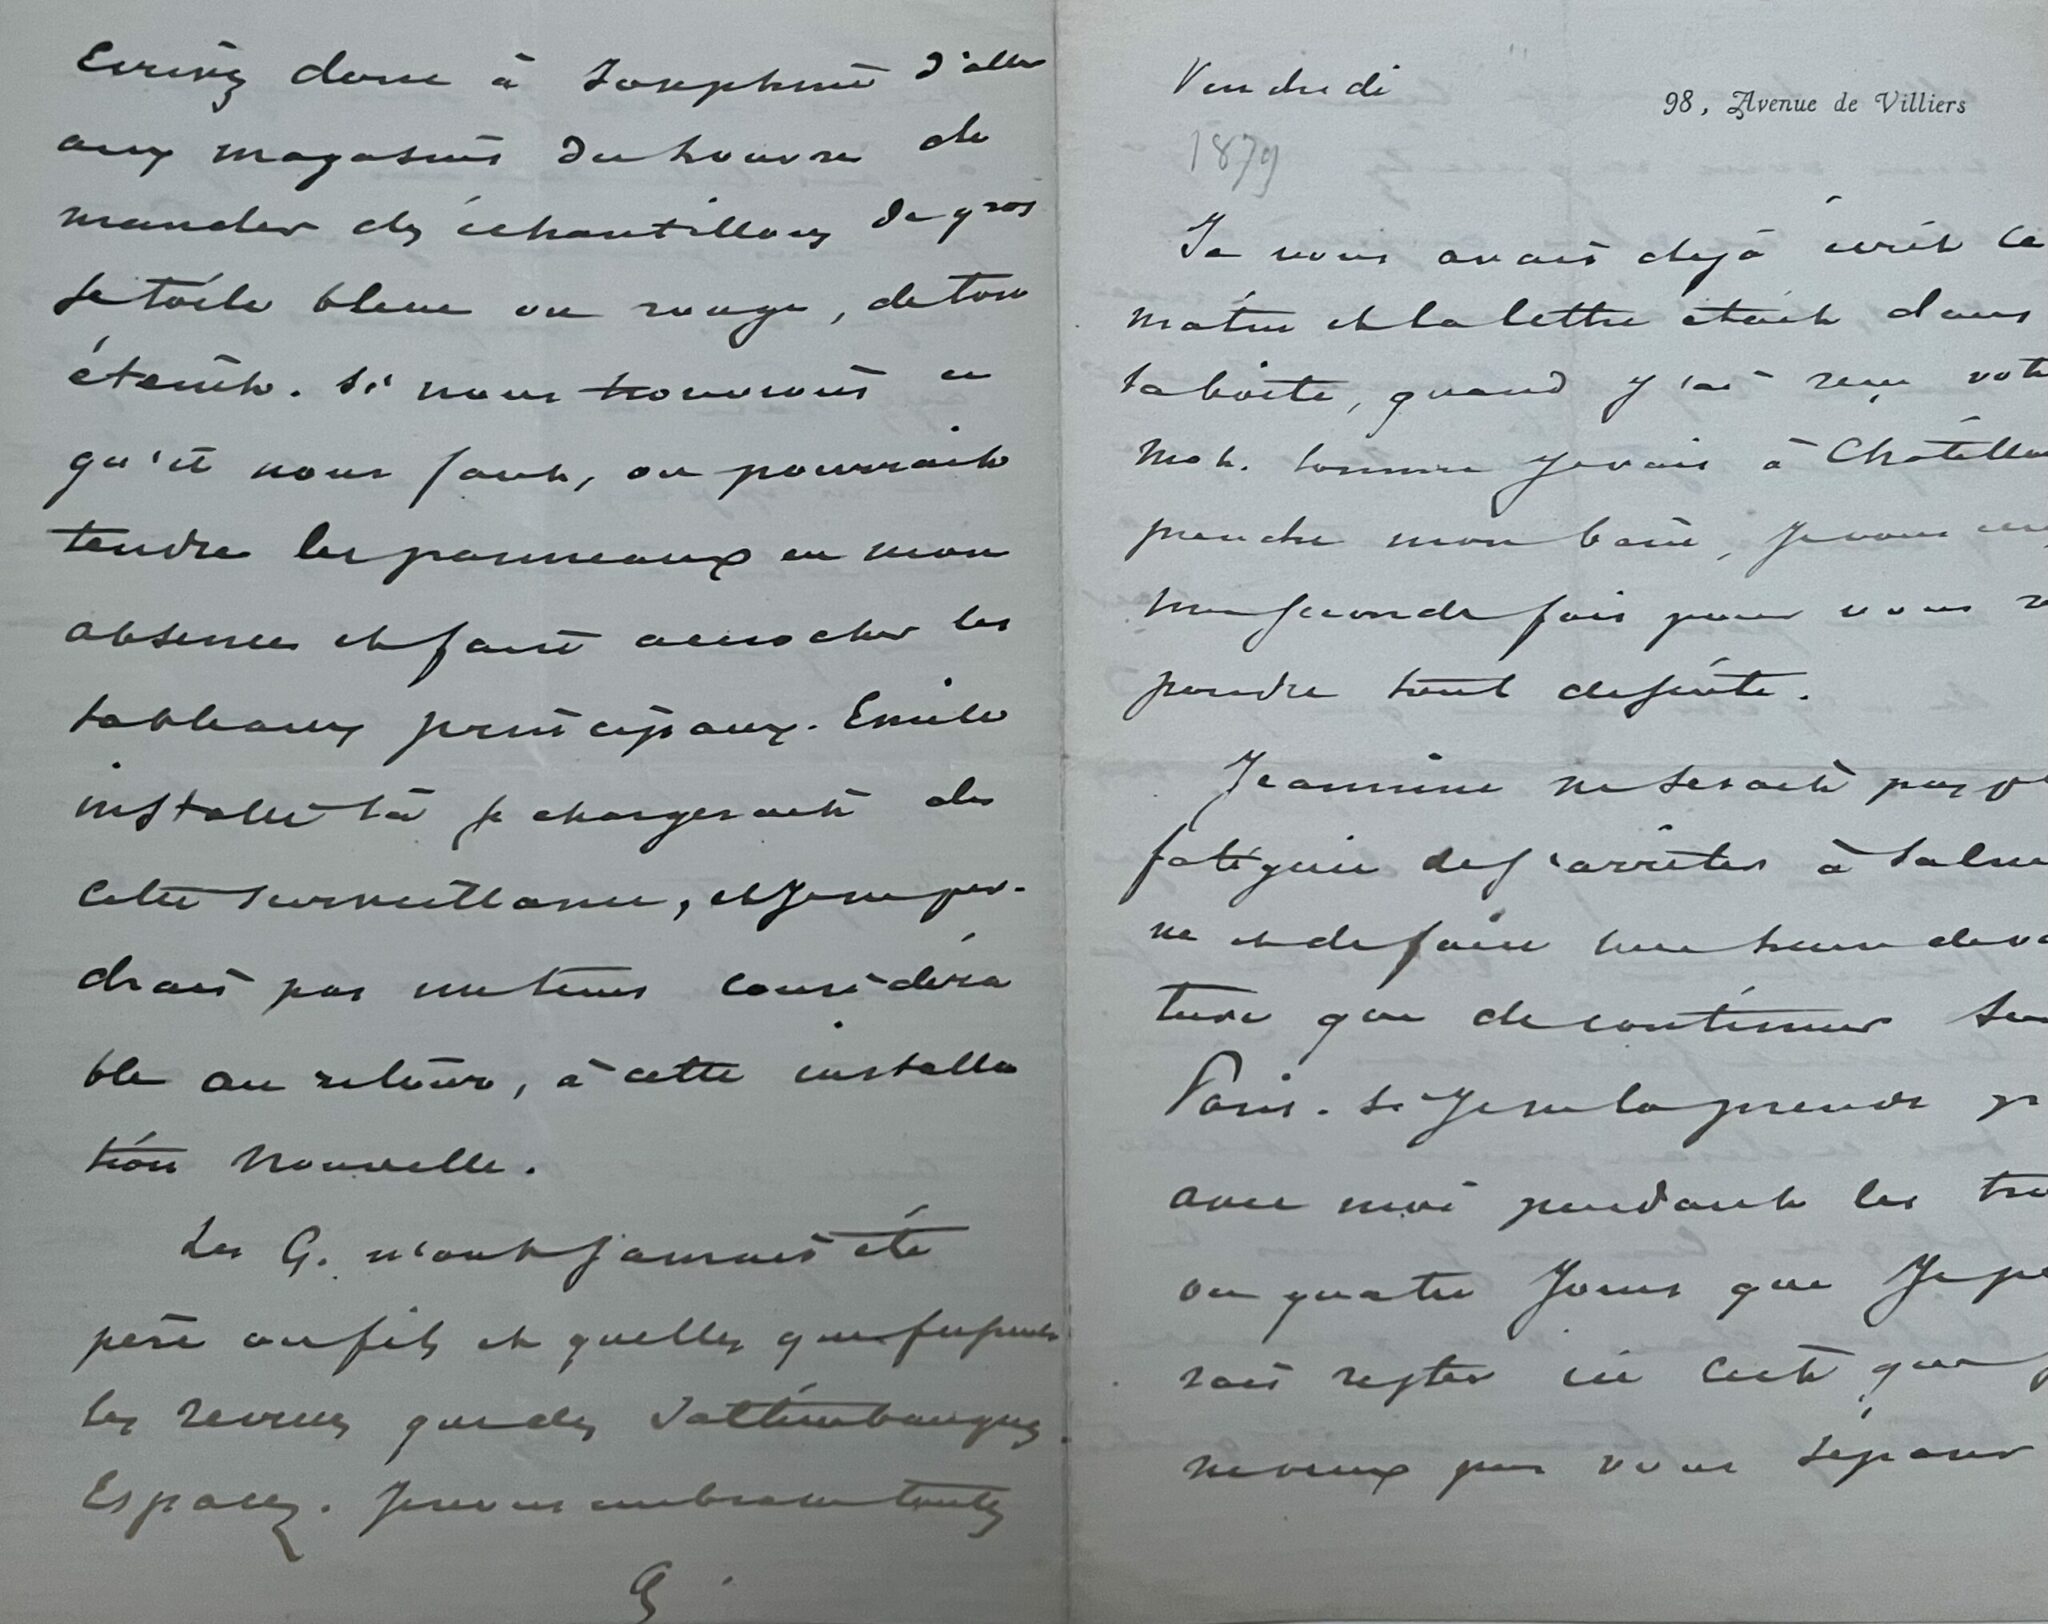 Ecrivez donc à Joséphine d'aller
aux magasins du Louvre de
mander des échantillons de gros
se toile bleue ou rouge, de ton
éteint. Si nous trouvions ce
qu'il nous faut, on pourrait
tendre les panneaux en mon
absence et faire accrocher les
tableaux principaux. Emile
installé là se chargerait de
cette surveillance, et je ne per-
drais pas un temps considéra
ble au retour, à cette installa
tion nouvelle.
Les G. n'ont jamais été
père ou fils et quelles que fussent
les revues que des
Espaces. Je vous embrasse toutes
G.
Vendredi
98, Avenue de Villiers
1879
Je vous avais déjà écrit ce
matin et la lettre était dans
la boîte, quand j'ai reçu vot
mot. Comme je vais à Châtillon
prendre mon bain, je vous
une seconde fois pour vous ré
pondre tout de suite.
Jeannine ne serait pas
fatiguée de s'arrêter à
ne et de faire une heure de voi
ture que de continuer sur
Paris. Si je ne la prends
avec moi pendant les tro
ou quatre jours que je
rais rester ici c'est que
ne veux pas vous séparer